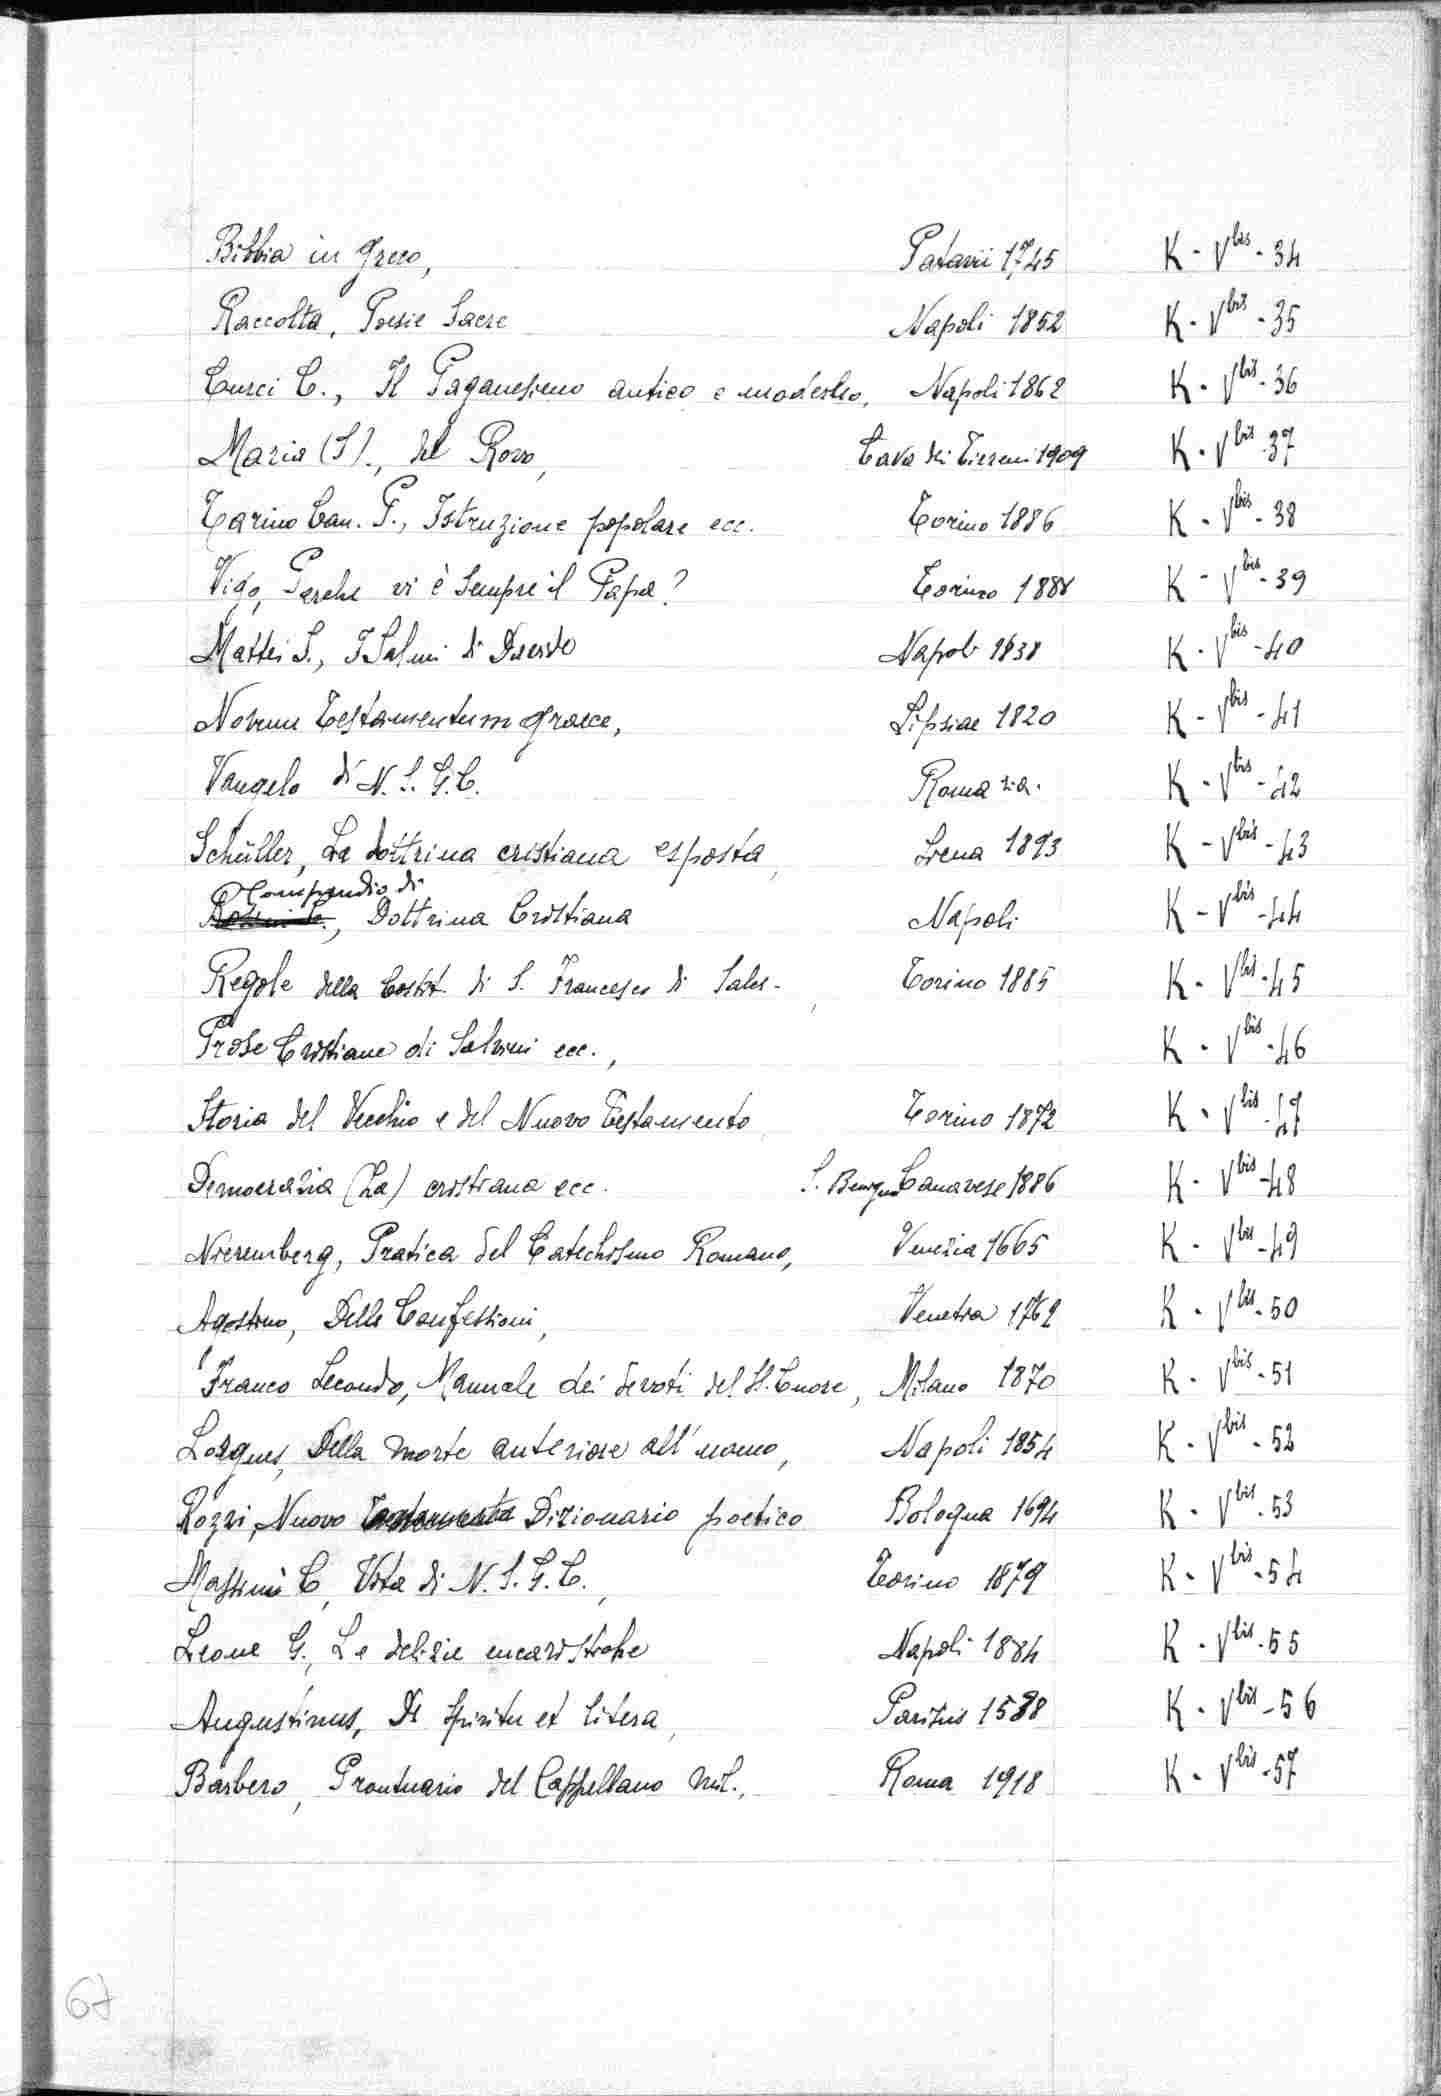 Bibbia in greco, Patavii 1745 K - V bis - 34
Raccolta, Poesie Sacre Napoli 1852 K - V bis - 35
Curci C., Il Paganesimo antico e moderno, Napoli 1862 K - V bis - 36
Maria (S)., del Rovo, Cava dei Tirreni 1909 K - V bis - 37
Tarino Can. P., Istruzione popolare ecc. Torino 1886 K - V bis - 38
Vigo, Perchè vi è sempre il Papa? Torino 1888 K - V bis - 39
Mattei S., I Salmi di Davide Napoli 1838 K - V bis - 40
Novum Testamentum graece, Lipsiae 1820 K - V bis - 41
Vangelo di N. S. G. C. Roma s.a. K - V bis - 42
Schüller, La dottrina cristiana esposta, Siena 1893 K - V bis - 43
Compendio di
Dottrina Cristiana Napoli K - V bis - 44
Regole della Costit. di S. Francesco di Sales-, Torino 1885 K - V bis - 45
Prose Cristiane di Salvini ecc., K - V bis - 46
Storia del Vecchio e del Nuovo Testamento Torino 1872 K - V bis - 47
Democrazia (La) cristiana ecc. S. Benigno Canavese 1886 K - V bis - 48
Nieremberg, Pratica del Catechismo Romano, Venezia 1665 K - V bis - 49
Agostino, Delle Confessioni, Venetia 1762 K - V bis - 50
Franco Secondo, Manuale dei devoti del S. Cuore, Milano 1870 K - V bis - 51
Della morte anteriore all'uomo, Napoli 1854 K - V bis - 52
Rozzi, Nuovo Dizionario poetico Bologna 1694 K - V bis - 53
Massimi C, Vita di N. S. G. C., Torino 1879 K - V bis - 54
Leone G., Le delizie eucaristiche Napoli 1884 K - V bis - 55
Augustinus, De spiritu et litera, Parisiis 1588 K - V bis - 56
Barbero, Prontuario del Cappellano mil., Roma 1918 K - V bis - 57
67